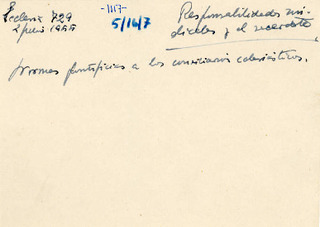 Ecclesia 729
2 julio 1955
-1117-
5/16/7
Responsabilidades sin-
dicales y el sacerdote
Normas pontificias a los consiliarios eclesiásticos.